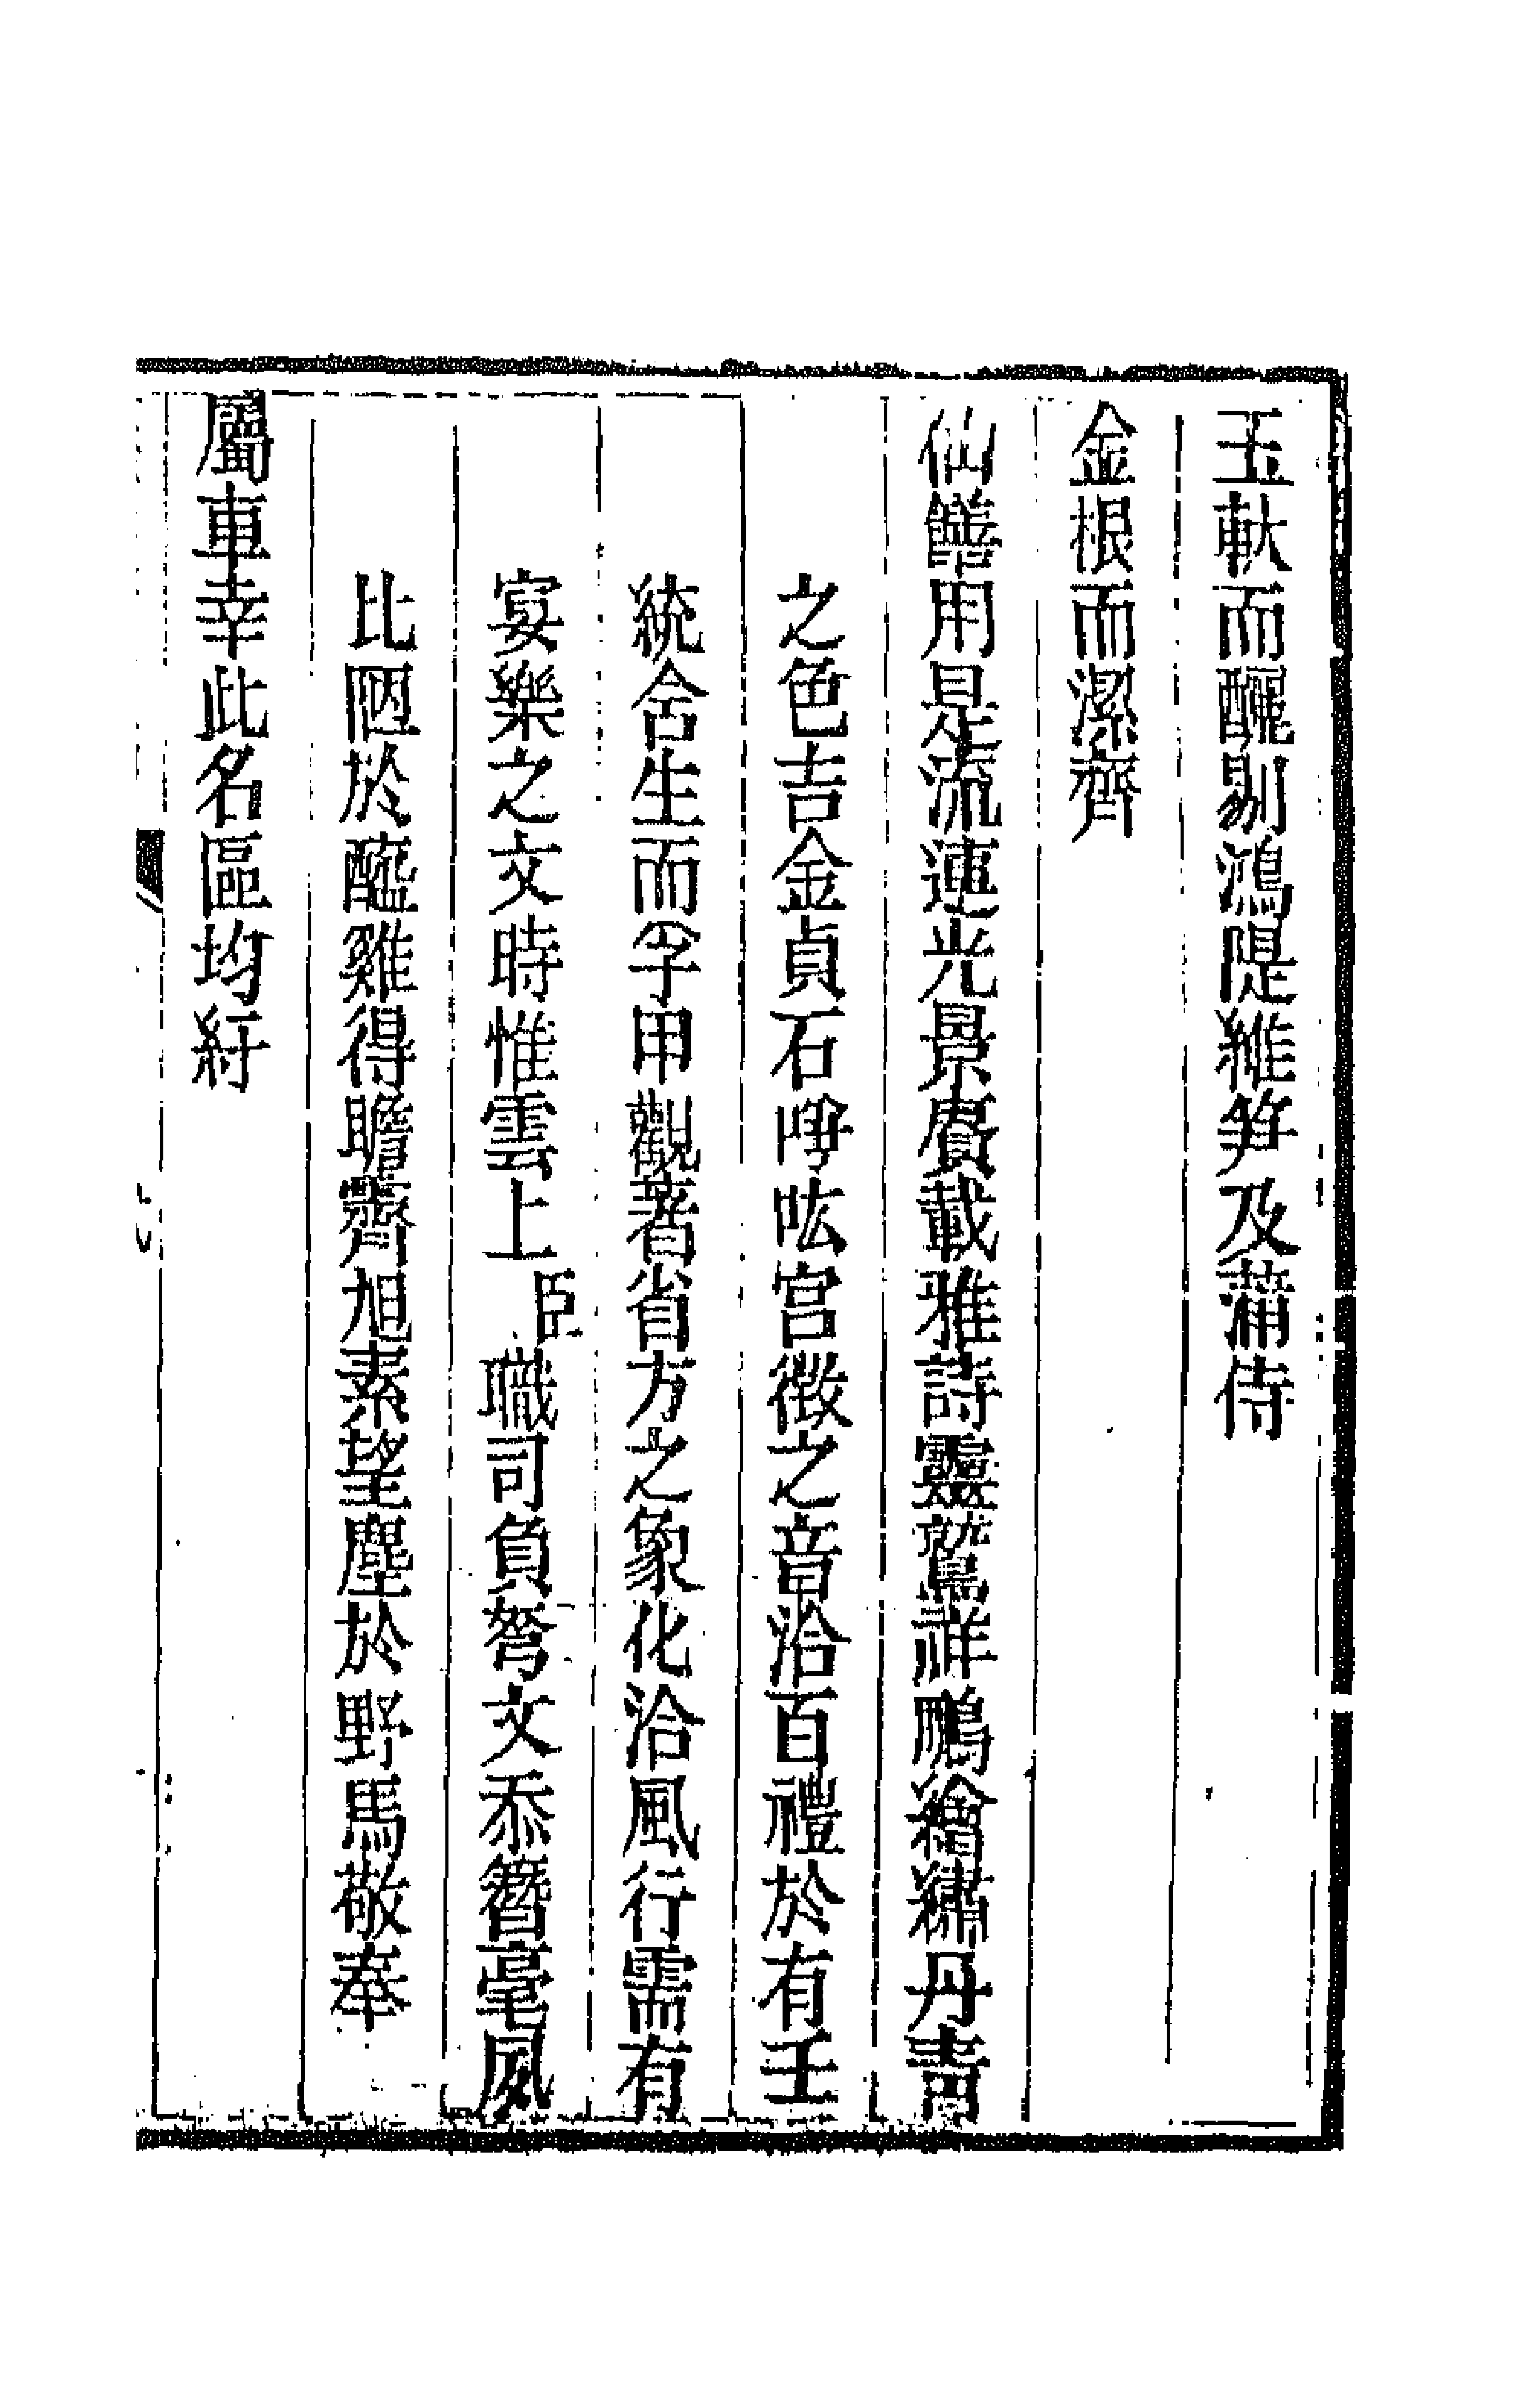 玉軑而釃剔鴻隄維笋及蒲侍
金根而潔齊
仙饍用是流連光景賡載雅詩靈鷲祥鵬繪繡丹青
之色吉金貞石吰宮徵之音洽百禮於有壬
統含生而孚甲觀著省方之象化洽風行需有
宴樂之文時惟雲上臣職司負弩文忝簪毫夙
比陋於醯雞得瞻霽旭素望塵於野馬敬奉
屬車幸此名區均紆